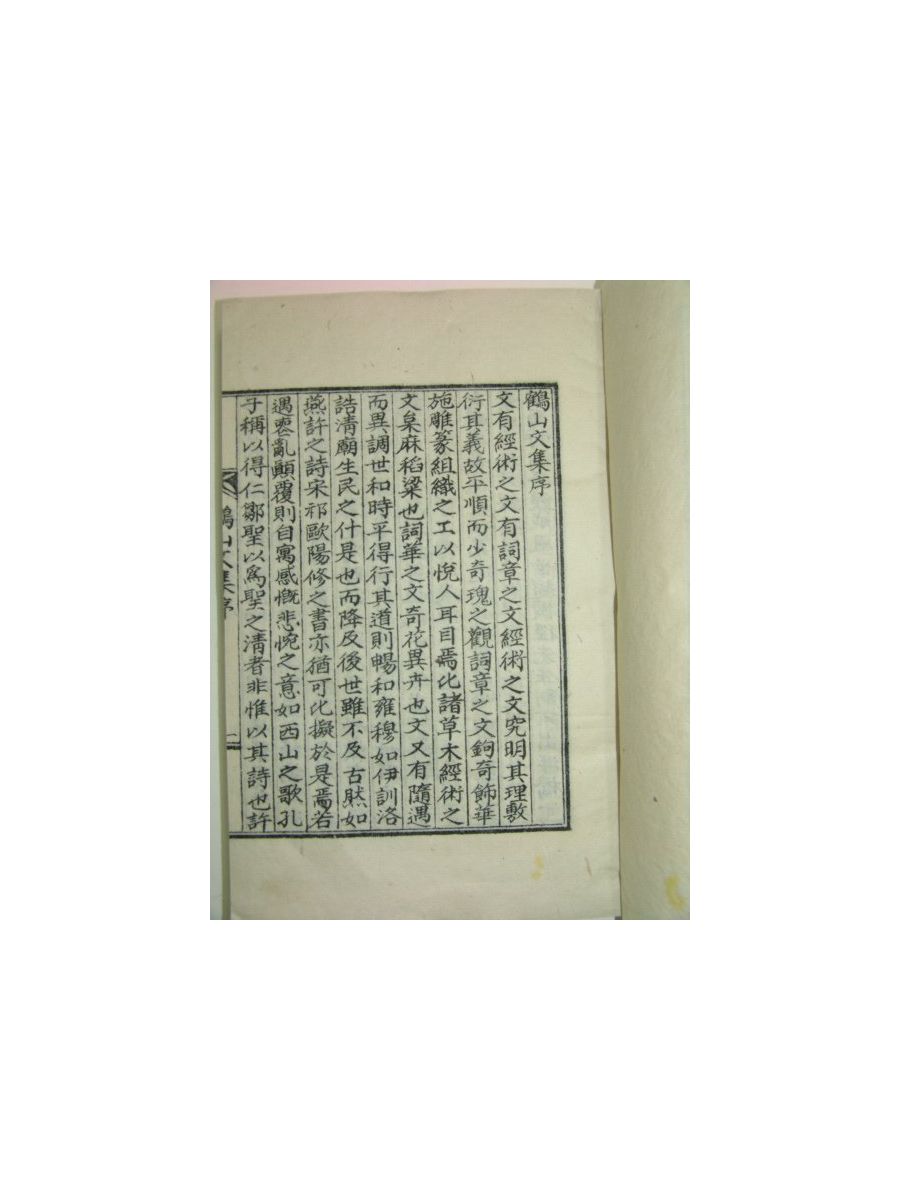 鶴山文集序
文有經術之文有詞章之文經術之文究明其理敷
衍其義故平順而少奇瑰之觀詞章之文鉤奇飾華
施雕篆組織之工以悅人耳目焉比諸草木經術之
文枲麻稻粱也詞華之文奇花異卉也文又有隨遇
而異調世和時平得行其道則暢和雍穆如伊訓洛
誥淸廟生民之什是也而降及後世雖不及古肰如
燕許之詩宋祁歐陽修之書亦猶可比擬於是焉若
遇喪亂顚覆則自寓感慨悲惋之意如西山之歌孔
子稱以得仁鄒聖以爲聖之淸者非惟以其詩也許
鶴山文集序